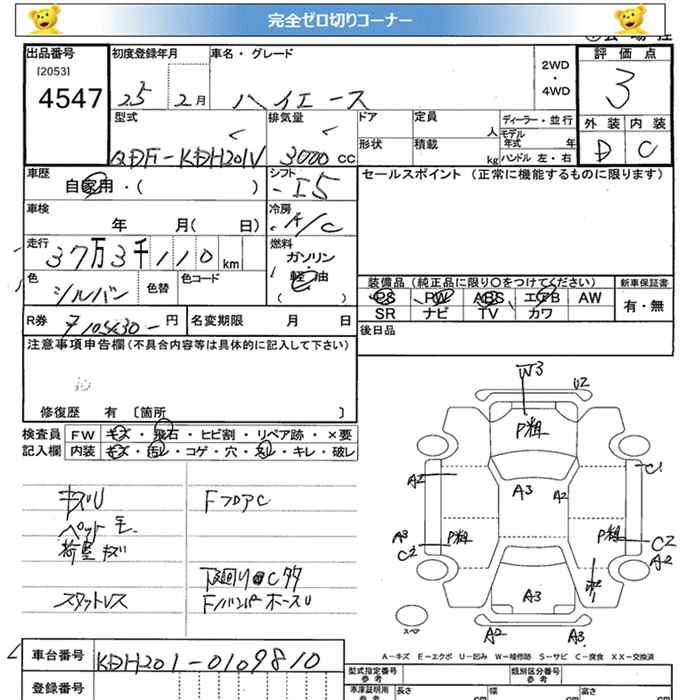 完全ゼロ切りコーナー
出品番号 [2053] 4547
初度登録年月 25 2月
車名・グレード ハイエース
2WD・4WD
評価点 3
外装 D 内装 C
型式 QDF-KDH201V
排気量 3000cc
ドア 形状
定員 人
積載 kg
ディーラー・並行
モデル年式 年
ハンドル 左・右
車歴 自家用・( )
シフト I5
セールスポイント (正常に機能するものに限ります)
車検 年 月( 日)
冷房 A/C
走行 37万3千110km
燃料 ガソリン・軽油
色 シルバー 色替 色コード
装備品(純正品に限り○をつけてください)
PS PW ABS エアB AW
SR ナビ TV カワ
新車保証書 有・無
R券 円 名変期限 月 日
後日品
注意事項申告欄(不具合内容等は具体的に記入して下さい)
修復歴 有 〔箇所 〕
検査員記入欄
FW キズ・飛石・ヒビ割・リペア跡・×要
内装 キズ・汚レ・コゲ・穴・スレ・キレ・破レ
キズU
FフロアC
ペット毛
荷室キズ
下廻りCタタ
スタットレス
Fバンパホースu
W3
U2
P粗
A3
A2
A2
C1
A3
C2
P粗
P粗
C2
A2
A3
A2
A3
スペア
A-キズ E-エクボ U-凹み W-補修跡 S-サビ C-腐食 XX-交換済
車台番号 KDH201-0109810
登録番号
型式指定番号 参考
類別区分番号 参考
車庫証明用 参考
長さ cm
幅 cm
高さ cm